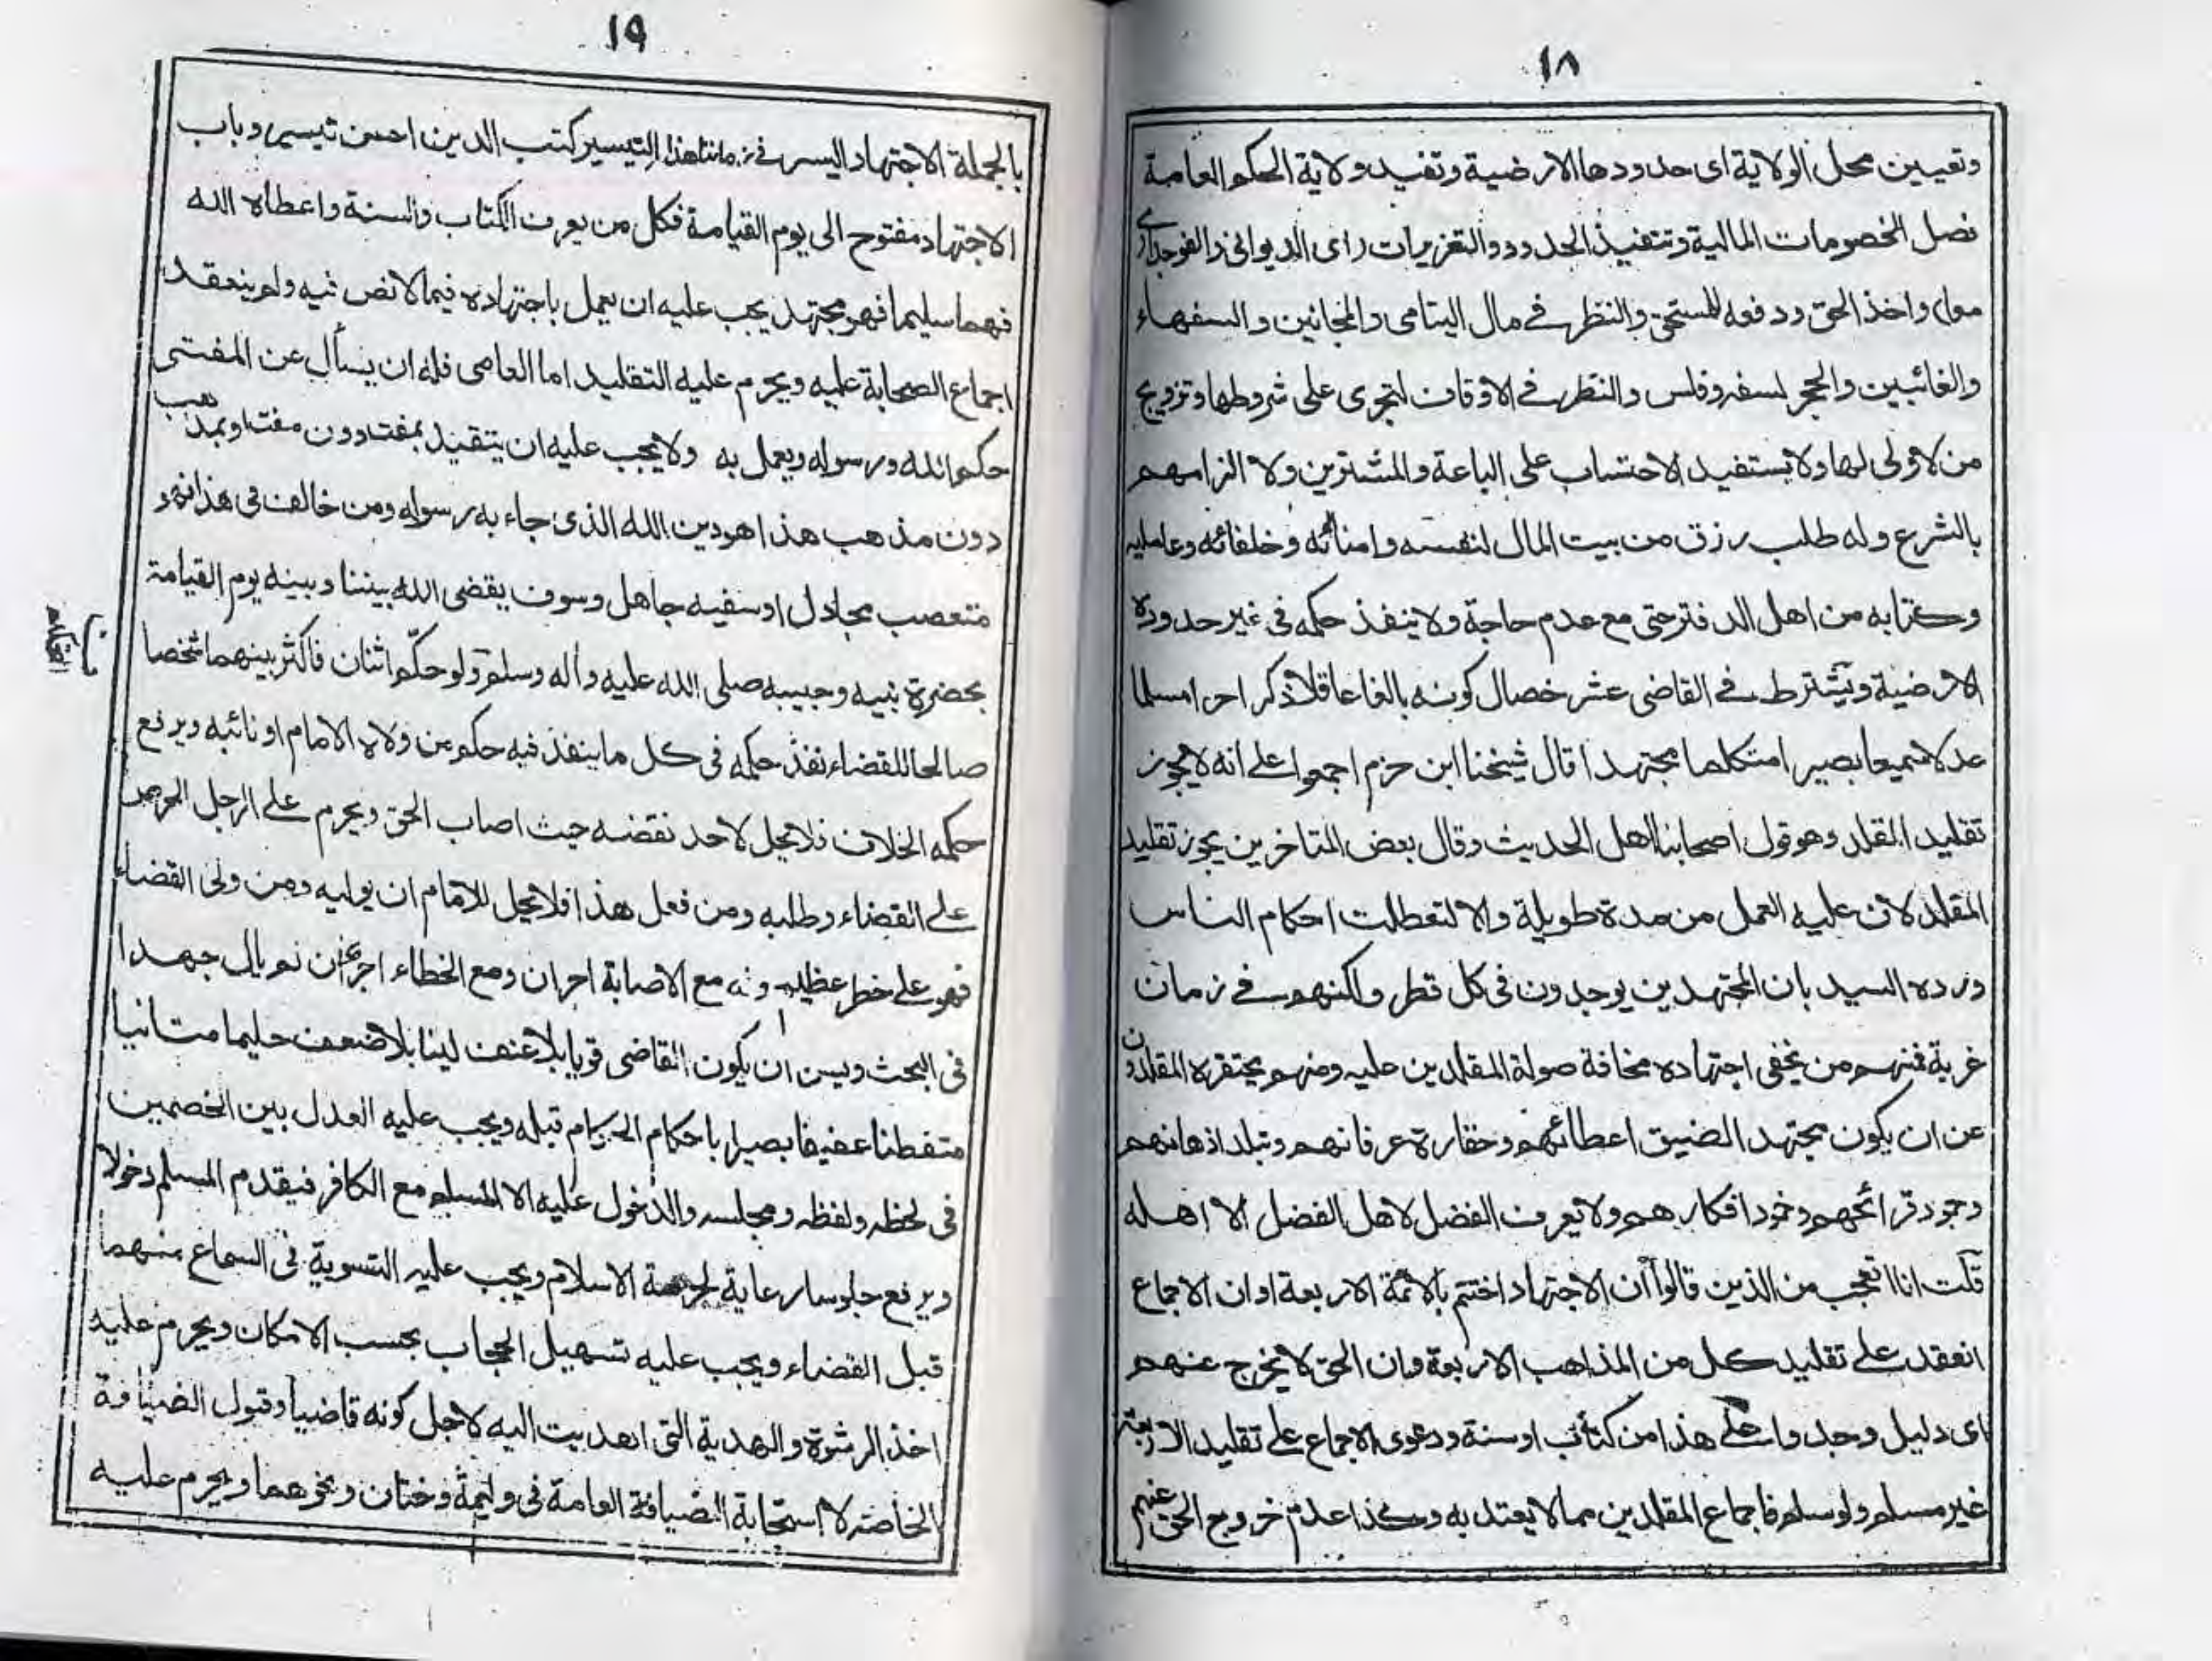 ١٨
وتعيين محل الولاية اى حدودها الارضية وتفيد ولاية الحكم العامة
فصل الخصومات المالية وتنفيذ الحدود والتعزيرات راى الديوانى والفوجدارى
واخذ الحق ودفعه للمستحق والنظر فى مال اليتامى والمجانين والسفهاء
والغائبين والحجر لسفه وفلس والنظر فى الاوقاف لتجرى على شروطها وتزويج
من لا ولى لها ولا يستفيد الاحتساب على الباعة والمشترين ولا الزامهم
بالشرع وله طلب رزق من بيت المال لنفسه وامنائه وخلفائه وعامليه
وكتابه من اهل الدفتر حتى مع عدم حاجة ولا ينفذ حكمه فى غير حدوده
الارضية ويشترط فى القاضى عشر خصال كونه بالغا عاقلا ذكرا حرا مسلما
عدلا سميعا بصيرا متكلما مجتهدا قال شيخنا ابن حزم اجمعوا على انه لا يجوز
تقليد المقلد وهو قول اصحابنا اهل الحديث وقال بعض المتاخرين يجوز تقليد
المقلد لان عليه العمل من مدة طويلة والا لتعطلت احكام الناس
ورده السيد بان المجتهدين يوجدون فى كل قطر ولكنهم فى زمان
غربة فمنهم من يخفى اجتهاده مخافة صولة المقلدين عليه ومنهم يحتقره المقلدون
عن ان يكون مجتهدا لضيق اعطائهم وحقارة عرفانهم وتبلد اذهانهم
وجمود قرائحهم وخمود افكارهم ولا يعرف الفضل لاهل الفضل الا اهله
قلت انا اتعجب من الذين قالوا ان الاجتهاد اختتم بالائمة الاربعة او ان الاجماع
انعقد على تقليد كل من المذاهب الاربعة وان الحق لا يخرج عنهم
اى دليل وجدوا على هذا من كتاب او سنة ودعوى الاجماع على تقليد الاربعة
غير مسلم ولو سلم فاجماع المقلدين مما لا يعتد به وكذا عدم خروج الحق عنهم
١٩
بالجملة الاجتهاد اليسر فى زماننا هذا لتيسير كتب الدين احسن تيسير وباب
الاجتهاد مفتوح الى يوم القيامة فكل من يعرف الكتاب والسنة واعطاه الله
فهما سليما فهو مجتهد يجب عليه ان يعمل باجتهاده فيما لا نص فيه ولم ينعقد
اجماع الصحابة عليه ويحرم عليه التقليد اما العامى فله ان يسأل عن المفتى
حكم الله ورسوله ويعمل به ولا يجب عليه ان يتقيد بمفت دون مفت او بمذهب
دون مذهب هذا هو دين الله الذى جاء به رسوله ومن خالف فى هذا فهو
متعصب مجادل او سفيه جاهل وسوف يقضى الله بيننا وبينه يوم القيامة
بحضرة نبيه وحبيبه صلى الله عليه وآله وسلم ولو حكّم اثنان فاكثر بينهما شخصا
صالحا للقضاء نفذ حكمه فى كل ما ينفذ فيه حكم من ولاه الامام او نائبه ويرفع
حكمه الخلاف فلا يحل لاحد نقضه حيث اصاب الحق ويحرم على الرجل الحرص
على القضاء وطلبه ومن فعل هذا فلا يحل للامام ان يوليه ومن ولى القضاء
فهو على خطر عظيم وله مع الاصابة اجران ومع الخطاء اجر ان لم يال جهدا
فى البحث ويسن ان يكون القاضى قويا بلا عنف لينا بلا ضعف حليما متانيا
متفطنا عفيفا بصيرا باحكام الحكام قبله ويجب عليه العدل بين الخصمين
فى لحظه ولفظه ومجلسه والدخول عليه الا المسلم مع الكافر فيقدم المسلم دخولا
ويرفع جلوسا رعاية لحرمة الاسلام ويجب عليه التسوية فى السماع منهما
قبل القضاء ويجب عليه تسهيل الحجاب بحسب الامكان ويحرم عليه
اخذ الرشوة والهدية التى اهديت اليه لاجل كونه قاضيا وقبول الضيافة
الخاصة لا استجابة الضيافة العامة فى وليمة وختان ونحوهما ويحرم عليه